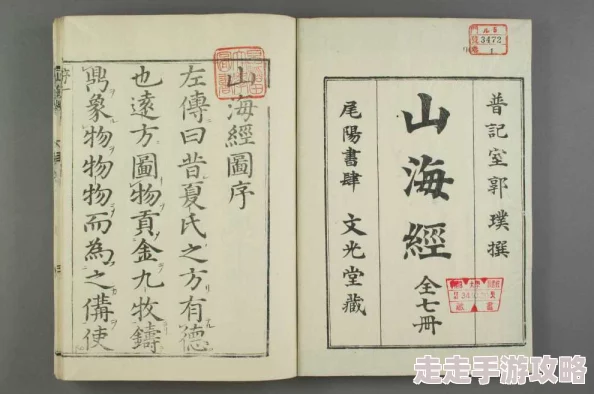 普記室郭璞撰
山海經
全七冊
尾陽書肆 文光堂藏
3472
1
山海經圖序
左傳曰昔夏氏之方有德
也遠方圖物貢金九牧鑄
鼎象物物物而為之備使
走走手游攻略